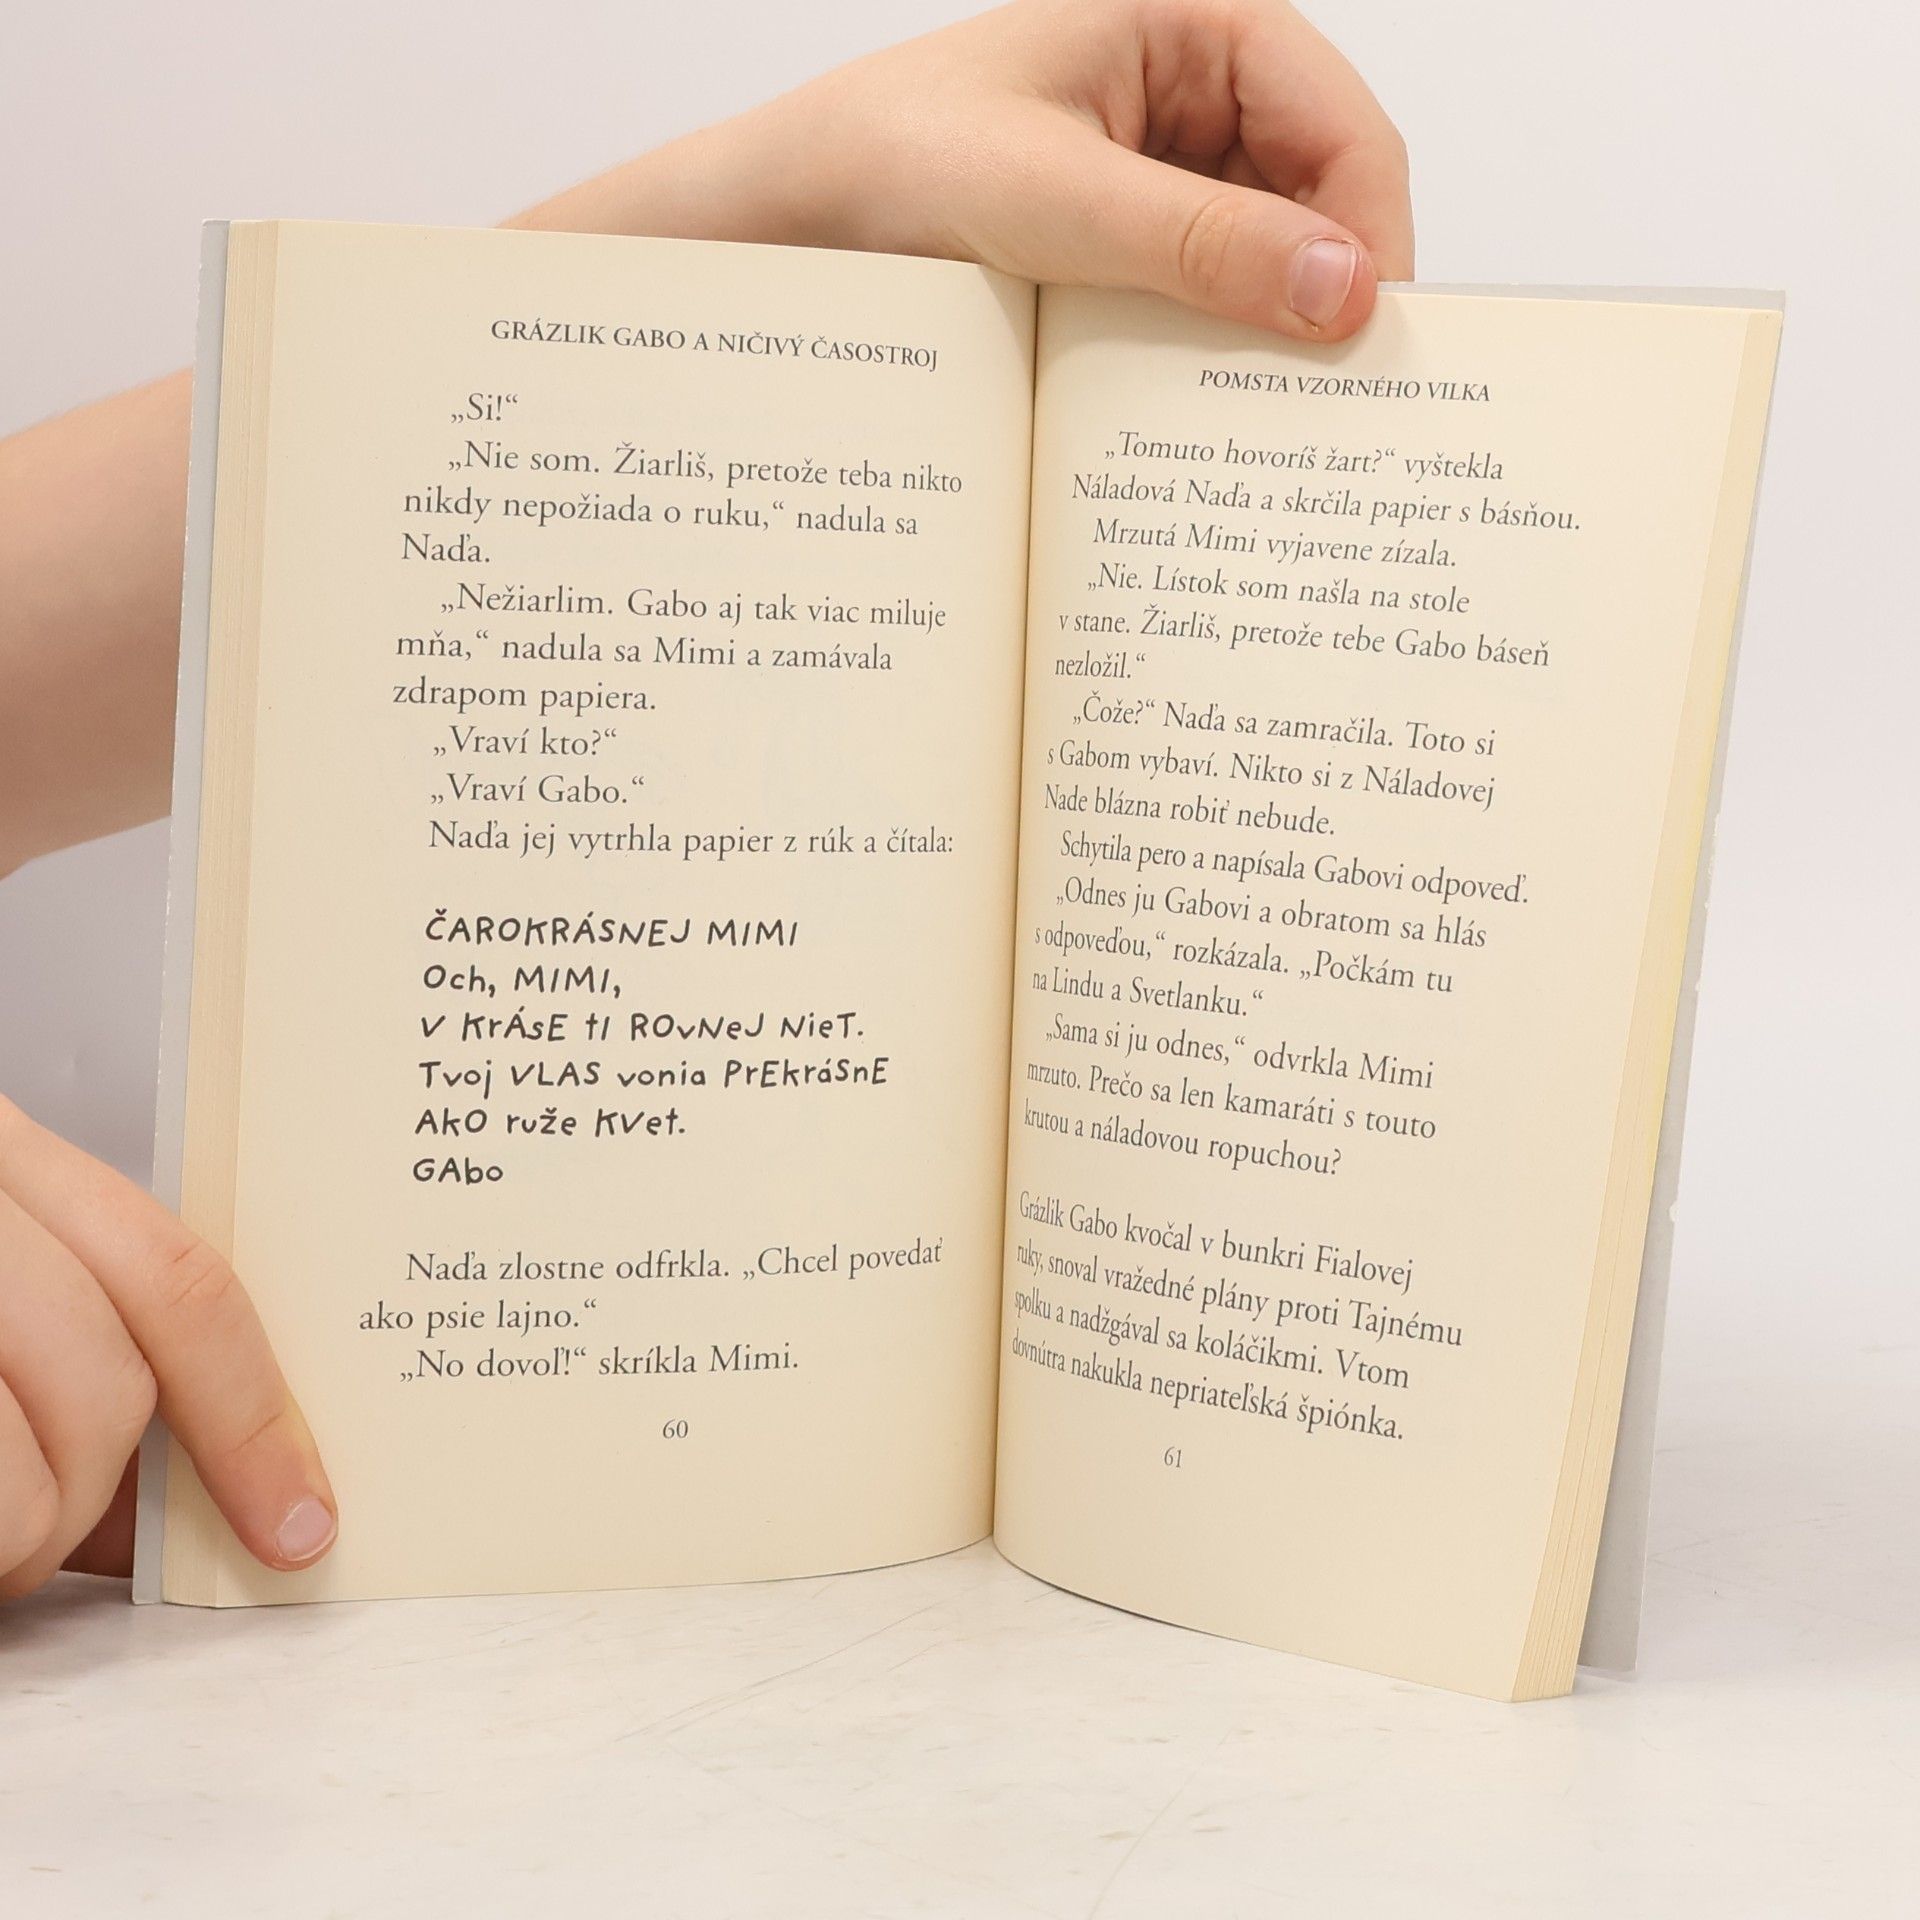 GRÁZLIK GABO A NIČIVÝ ČASOSTROJ
„Si!“
„Nie som. Žiarliš, pretože teba nikto
nikdy nepožiada o ruku,“ nadula sa
Naďa.
„Nežiarlim. Gabo aj tak viac miluje
mňa,“ nadula sa Mimi a zamávala
zdrapom papiera.
„Vraví kto?“
„Vraví Gabo.“
Naďa jej vytrhla papier z rúk a čítala:
ČAROKRÁSNEJ MIMI
Och, MIMI,
V KrÁsE tI ROvNeJ NieT.
Tvoj VLAS vonia PrEkráSnE
AkO ruže KVet.
GAbo
Naďa zlostne odfrkla. „Chcel povedať
ako psie lajno.“
„No dovoľ!“ skríkla Mimi.
60
POMSTA VZORNÉHO VILKA
„Tomuto hovoríš žart?“ vyštekla
Náladová Naďa a skrčila papier s básňou.
Mrzutá Mimi vyjavene zízala.
„Nie. Lístok som našla na stole
v stane. Žiarliš, pretože tebe Gabo báseň
nezložil.“
„Čože?“ Naďa sa zamračila. Toto si
s Gabom vybaví. Nikto si z Náladovej
Nade blázna robiť nebude.
Schytila pero a napísala Gabovi odpoveď.
„Odnes ju Gabovi a obratom sa hlás
s odpoveďou,“ rozkázala. „Počkám tu
na Lindu a Svetlanku.“
„Sama si ju odnes,“ odvrkla Mimi
mrzuto. Prečo sa len kamaráti s touto
krutou a náladovou ropuchou?
Grázlik Gabo kvočal v bunkri Fialovej
ruky, snoval vražedné plány proti Tajnému
spolku a nadžgával sa koláčikmi. Vtom
dovnútra nakukla nepriateľská špiónka.
61